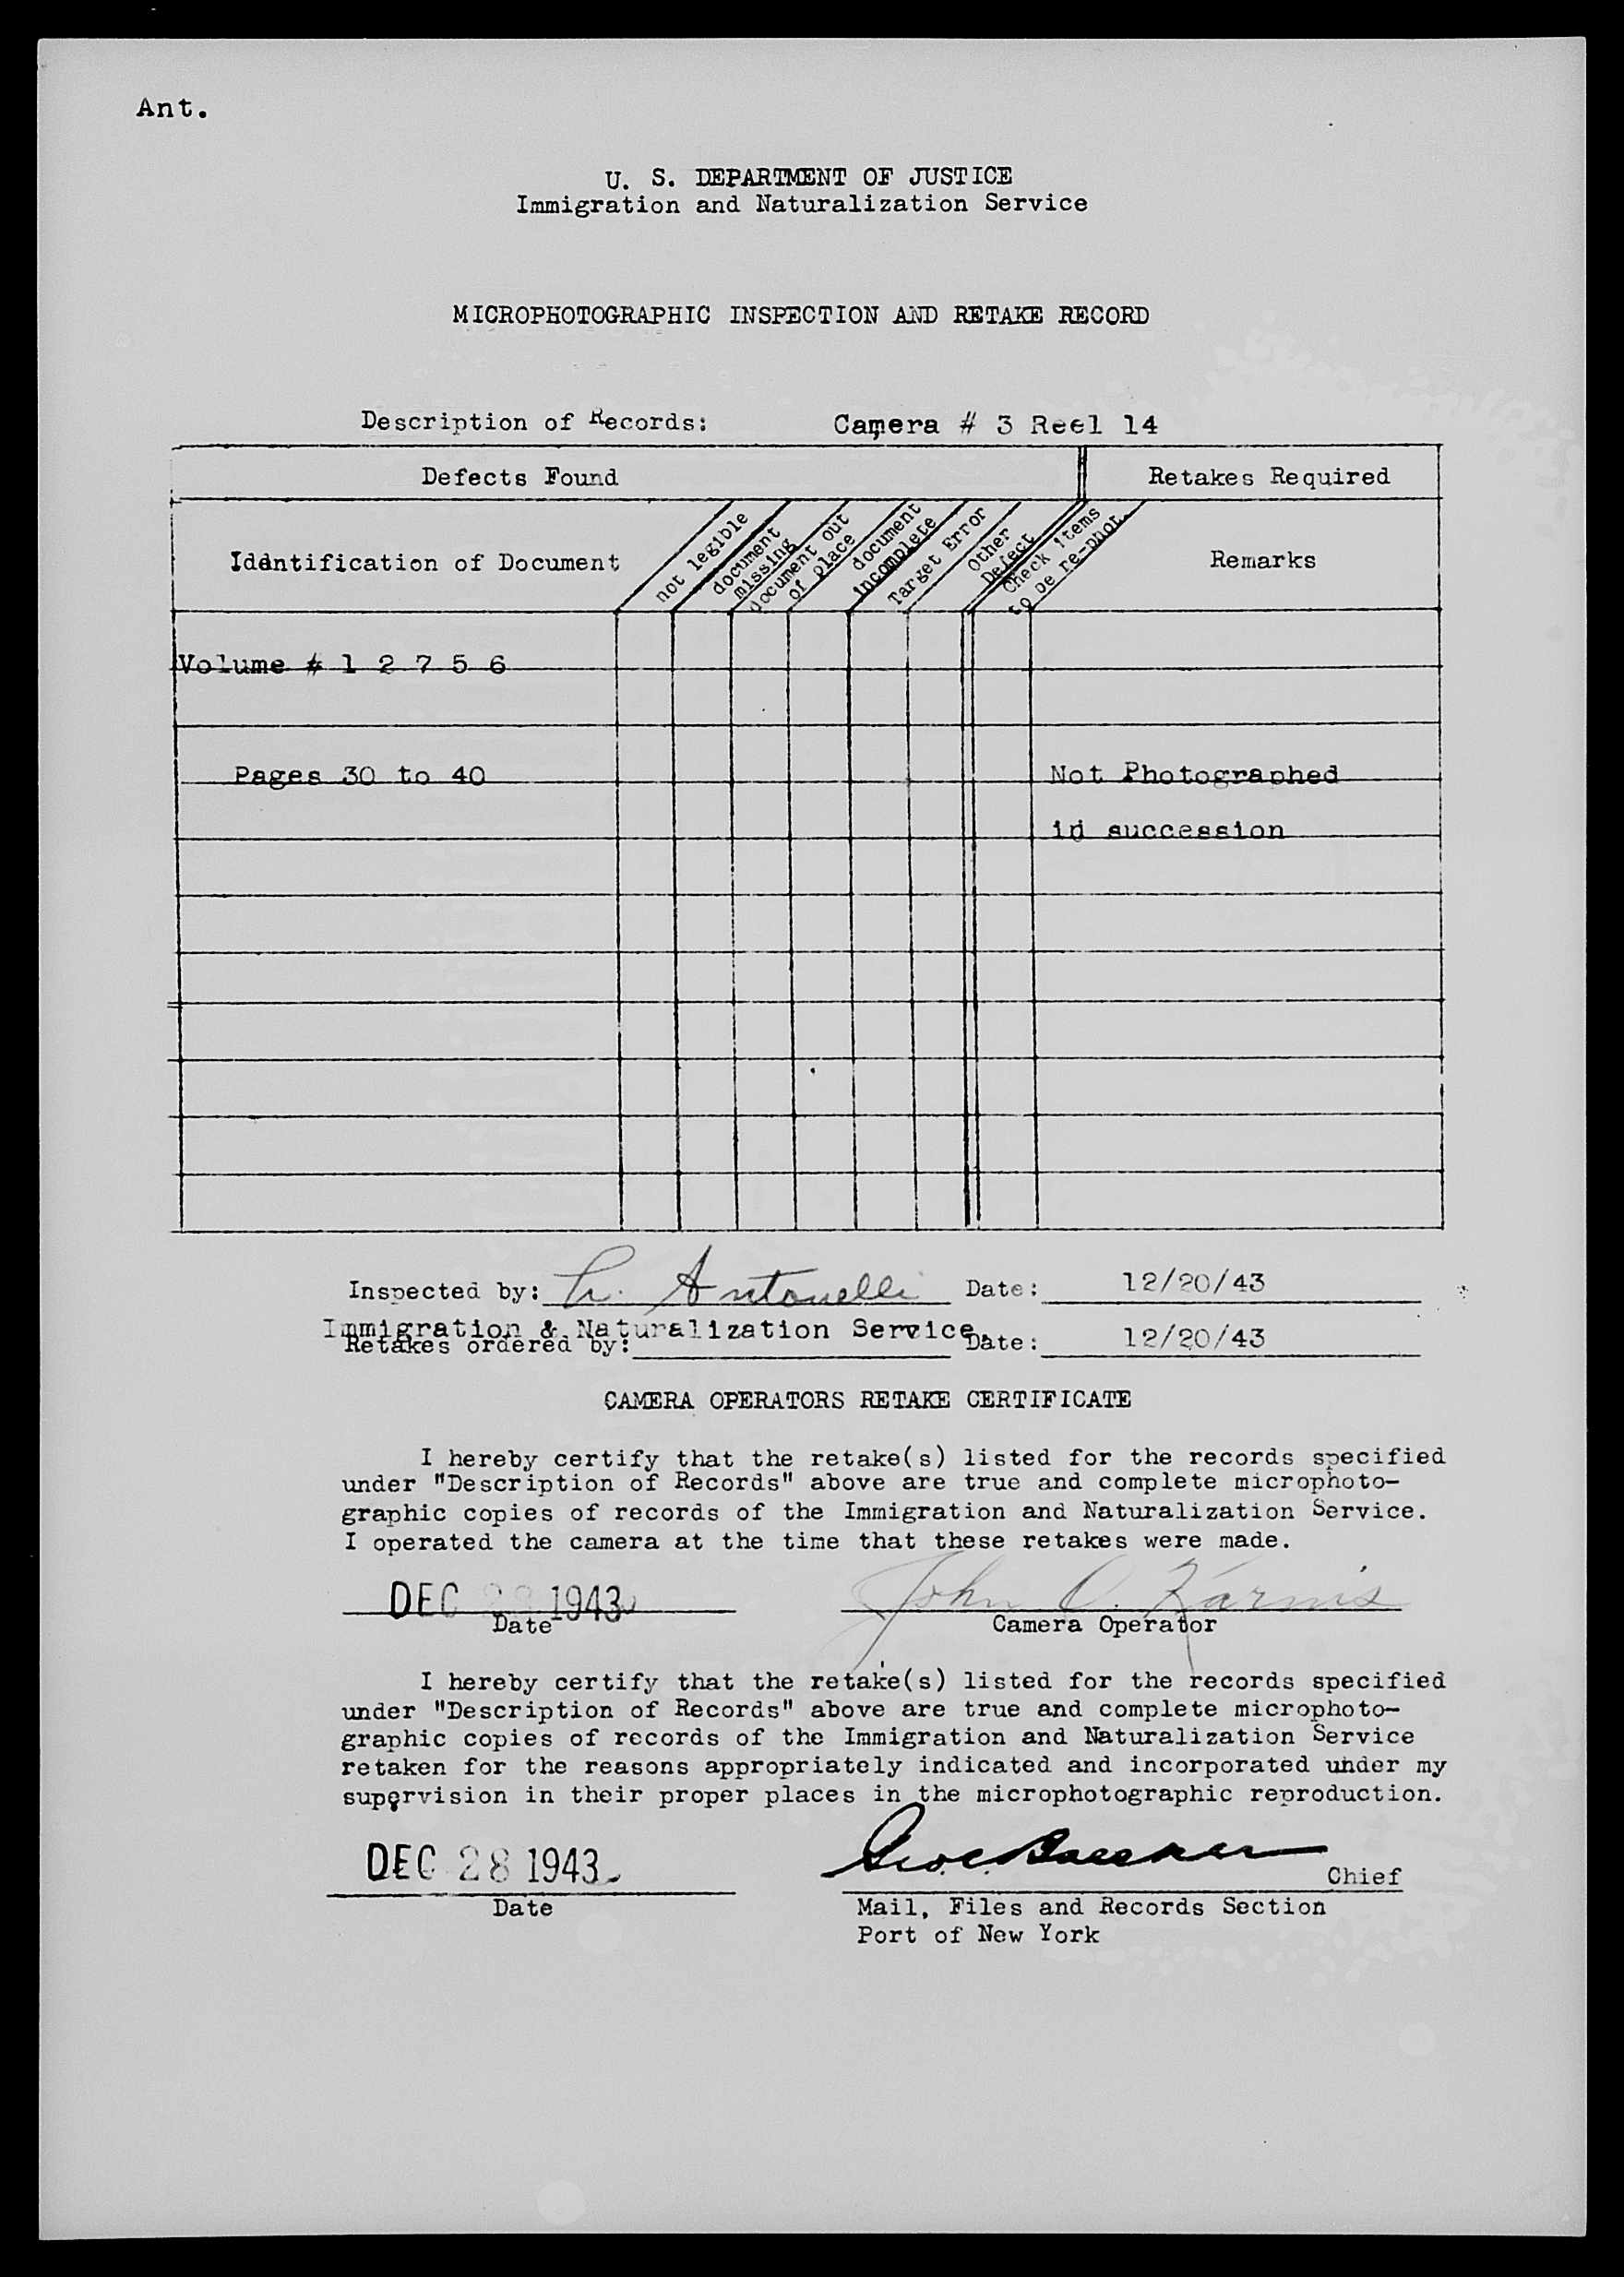 Ant.
U. S. DEPARTMENT OF JUSTICE
Immigration and Naturalization Service
MICROPHOTOGRAPHIC INSPECTION AND RETAKE RECORD
Description of Records: Camera # 3 Reel 14
Defects Found
Retakes Required
Idéntification of Document
not legible
document missing
document out of place
document incomplete
Target Error
Other Defect
Check items to be re-phot.
Remarks
Volume # 1 2 7 5 6
Pages 30 to 40 Not Photographed
in succession
Inspected by: Antonelli Date: 12/20/43
Immigration & Naturalization Service.
Retakes ordered by: Date: 12/20/43
CAMERA OPERATORS RETAKE CERTIFICATE
I hereby certify that the retake(s) listed for the records specified
under "Description of Records" above are true and complete microphoto-
graphic copies of records of the Immigration and Naturalization Service.
I operated the camera at the time that these retakes were made.
DEC 28 1943 John
Date Camera Operator
I hereby certify that the retake(s) listed for the records specified
under "Description of Records" above are true and complete microphoto-
graphic copies of records of the Immigration and Naturalization Service
retaken for the reasons appropriately indicated and incorporated under my
supervision in their proper places in the microphotographic reproduction.
DEC 28 1943 Chief
Date Mail, Files and Records Section
Port of New York